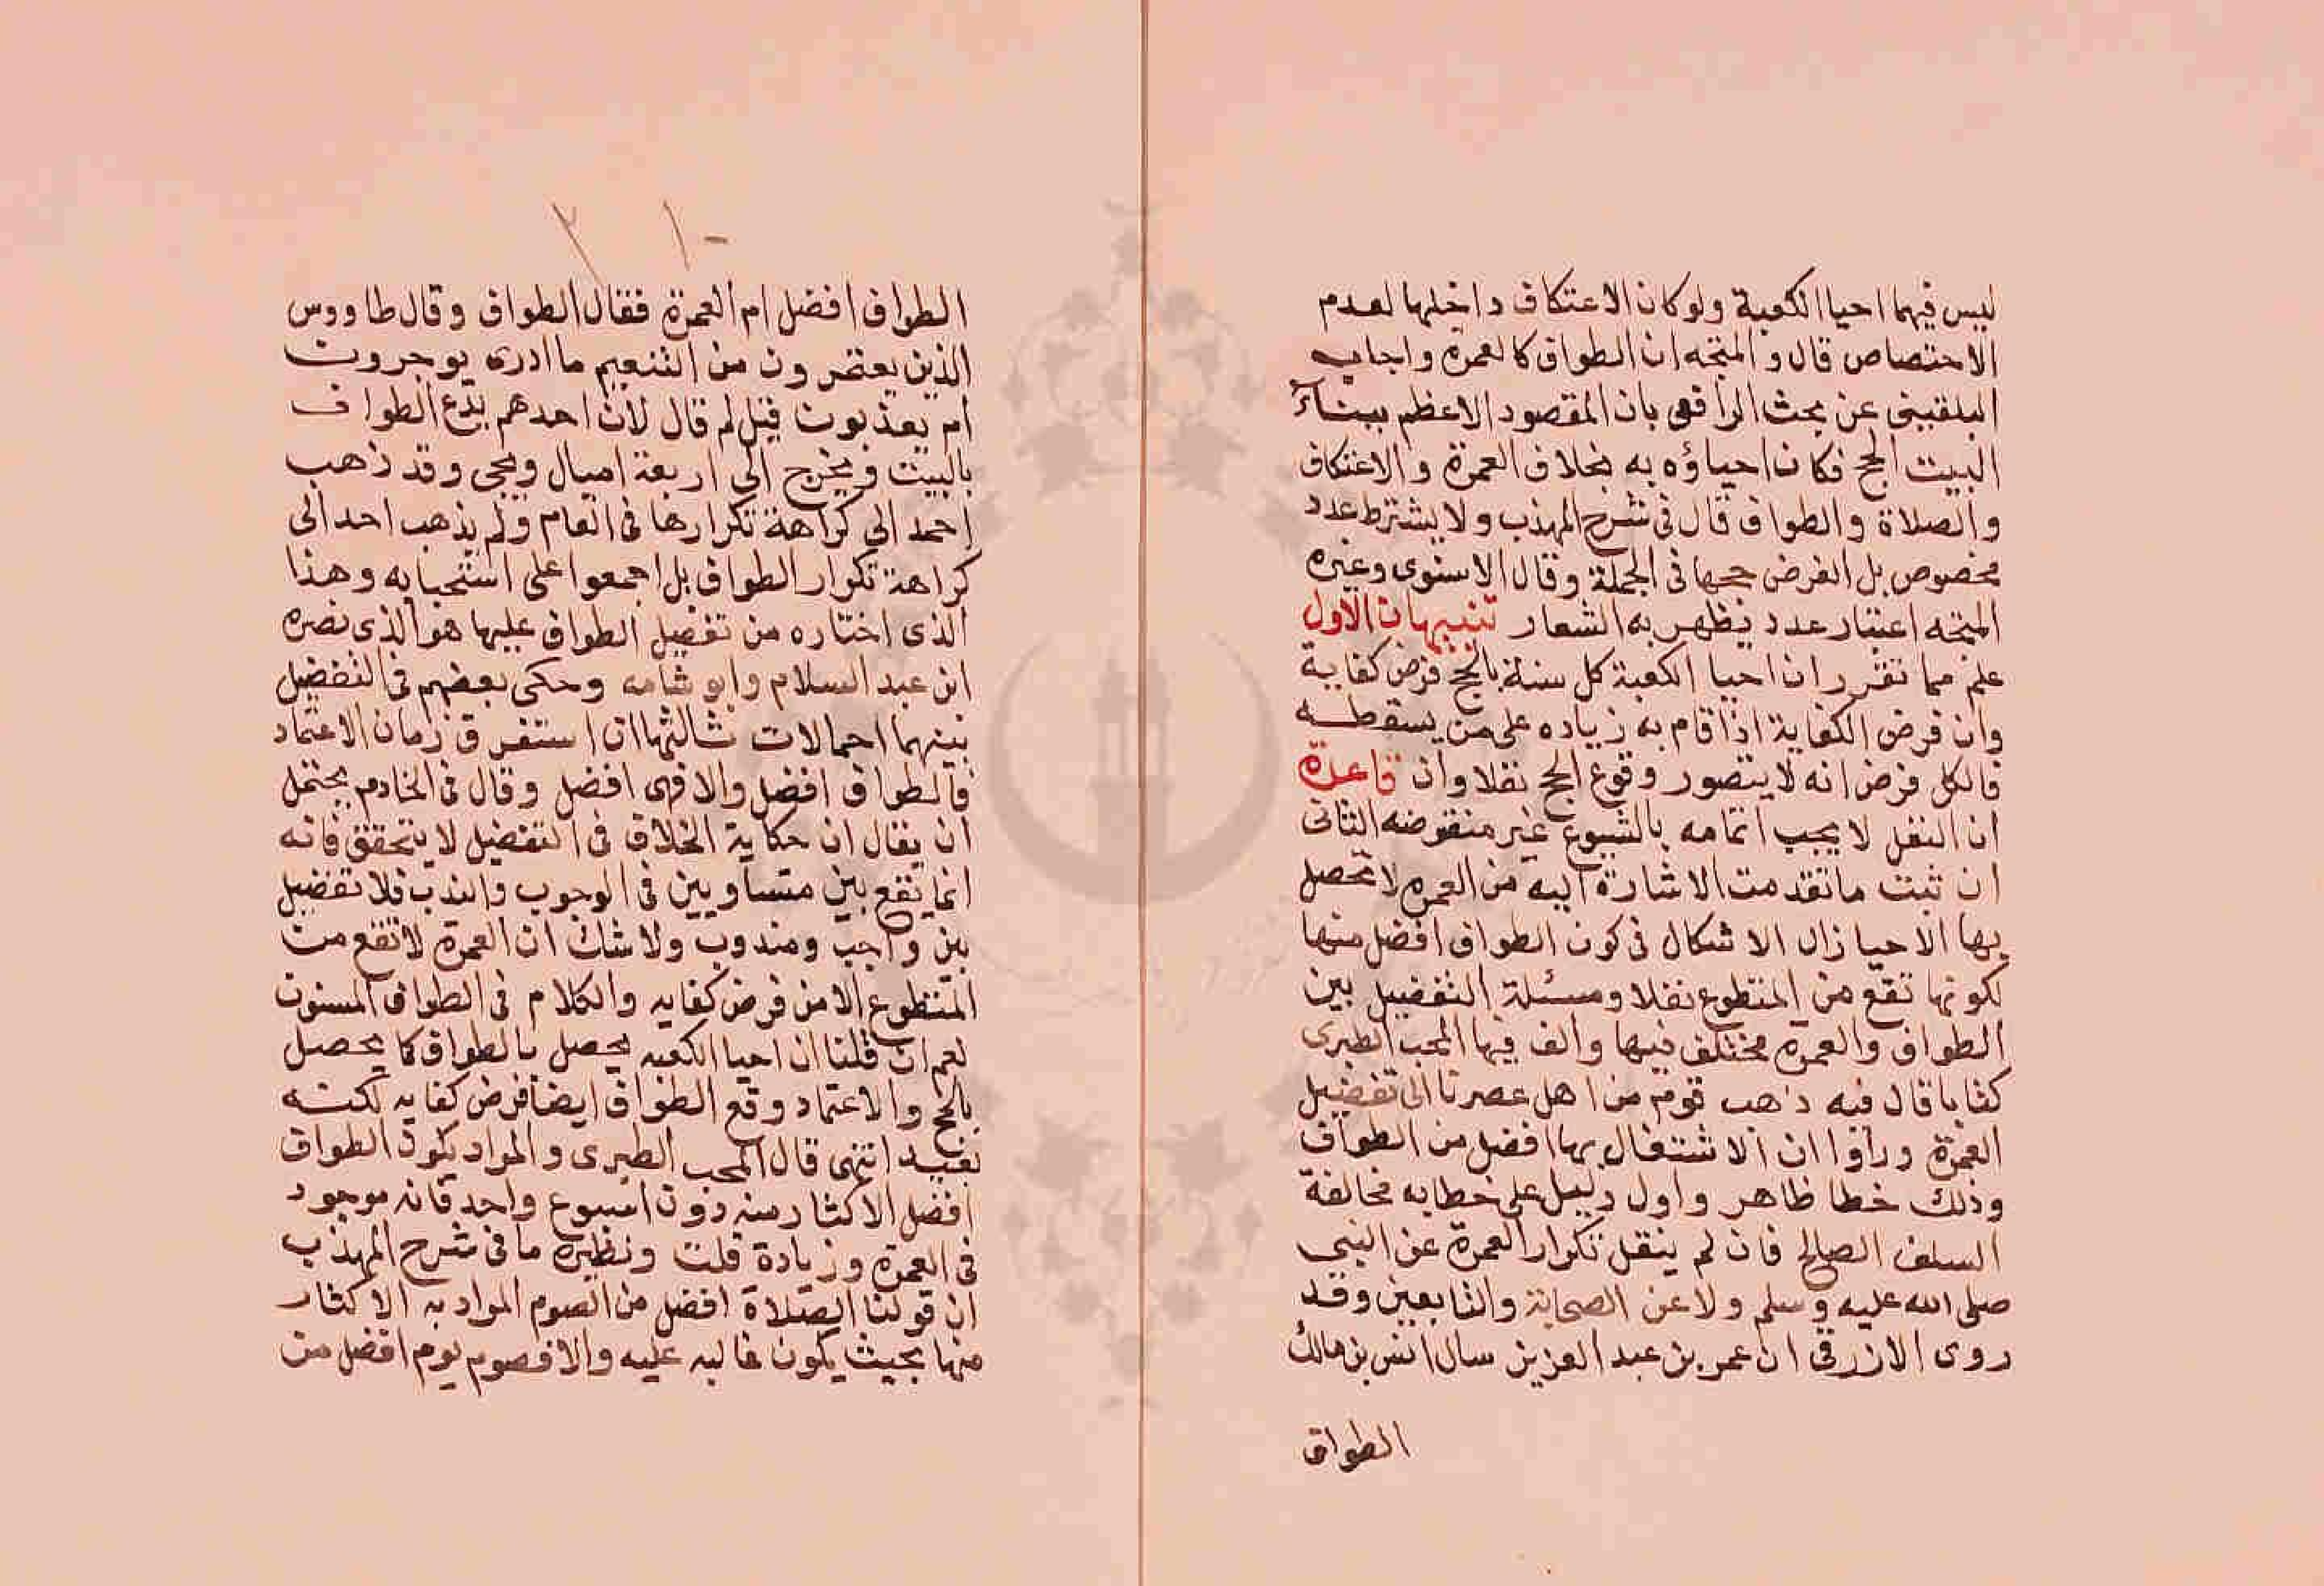 ليس فيهما احيا الكعبة ولو كان الاعتكاف داخلها لعدم
الاختصاص قال والمتجه ان الطواف كالعمرة واجاب
البلقيني عن بحث الرافعي بان المقصود الاعظم ببناء
البيت الحج فكان احياؤه به بخلاف العمرة والاعتكاف
والصلاة والطواف قال في شرح المهذب ولا يشترط عدد
مخصوص بل الفرض حجها في الجملة وقال الاسنوي وغيره
المتجه اعتبار عدد يظهر به الشعار تنبيهان الاول
علم مما تقرر ان احيا الكعبة كل سنة بالحج فرض كفاية
وان فرض الكفاية اذا قام به زياده على من يسقطه
فالكل فرض انه لا يتصور وقوع الحج نفلا وان قاعدة
ان النفل لا يجب اتمامه بالشروع غير منتقضه الثاني
ان ثبت ما تقدمت الاشارة اليه من العمره لا تحصل
بها الاحيا زال الاشكال في كون الطواف افضل منها
لكونها تقع من المتطوع نفلا ومسئلة التفضيل بين
الطواف والعمرة مختلف فيها والف فيها المحب الطبري
كتابا قال فيه ذهب قوم من اهل عصرنا الى تفضيل
العمرة وراوا ان الاشتغال بها افضل من الطواف
وذلك خطا ظاهر واول دليل على خطايه مخالفة
السلف الصالح فان لم ينقل تكرار العمرة عن النبي
صلى الله عليه وسلم ولا عن الصحابة والتابعين وقد
روى الازرقي ان عمر بن عبد العزيز سال انس بن مالك
الطواف
الطواف افضل ام العمرة فقال الطواف وقال طاووس
الذين يعتمرون من التنعيم ما ادرى يوجرون
ام يعذبون قيل لم قال لان احدهم يدع الطواف
بالبيت ويخرج الى اربعة اميال ويجى وقد ذهب
احمد الى كراهة تكرارها في العام ولم يذهب احد الى
كراهة تكرار الطواف بل اجمعوا على استحبابه وهذا
الذى اختاره من تفضيل الطواف عليها هو الذى نصره
ابن عبد السلام وابو شامه وحكى بعضهم في التفضيل
بينهما احتمالات ثالثها ان استغرق زمان الاعتماد
فالطواف افضل والا فهى افضل وقال في الخادم يحتمل
ان يقال ان حكاية الخلاف في التفضيل لا يتحقق فانه
انما يقع بين متساويين في الوجوب والندب فلا تفضيل
بين واجب ومندوب ولا شك ان العمرة لا تقع من
المتطوع الا من فرض كفايه والكلام في الطواف المسنون
نعم ان قلنا ان احيا الكعبه يحصل بالطواف كما يحصل
بالحج والاعتماد وقع الطواف ايضا فرض كفايه لكنه
بعيد انتهى قال المحب الطبرى والمراد بكون الطواف
افضل الاكثار منه دون اسبوع واحد فانه موجود
في العمرة وزيادة قلت ونظيره ما في شرح المهذب
ان قولنا الصلاة افضل من الصوم المراد به الاكثار
منها بحيث يكون غالبه عليه والا فصوم يوم افضل من